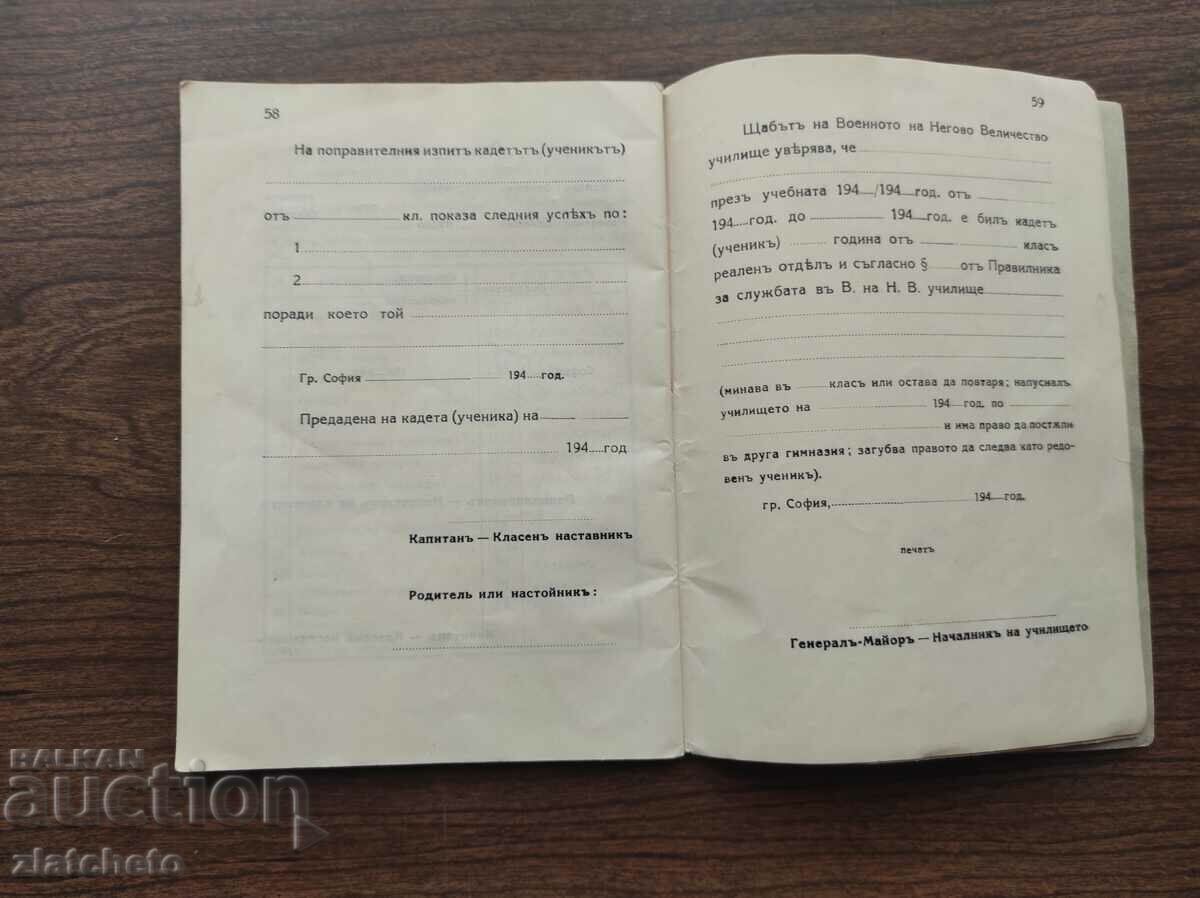 58
На поправителния изпитъ кадетътъ (ученикътъ)
отъ кл. показа следния успѣхъ по:
1
2
поради което той
Гр. София 194 год.
Предадена на кадета (ученика) на
194 год
Капитанъ — Класенъ наставникъ
Родитель или настойникъ:
59
Щабътъ на Военното на Негово Величество
училище увѣрява, че
презъ учебната 194 /194 год. отъ
194 год. до 194 год. е билъ кадетъ
(ученикъ) година отъ класъ
реаленъ отдѣлъ и съгласно § отъ Правилника
за службата въ В. на Н. В. училище
(минава въ класъ или остава да повтаря; напусналъ
училището на 194 год. по
и има право да постѫпи
въ друга гимназия; загубва правото да следва като редо-
венъ ученикъ).
гр. София, 194 год.
печатъ
Генералъ-Майоръ — Началникъ на училището
BALKAN
auction
zlatcheto